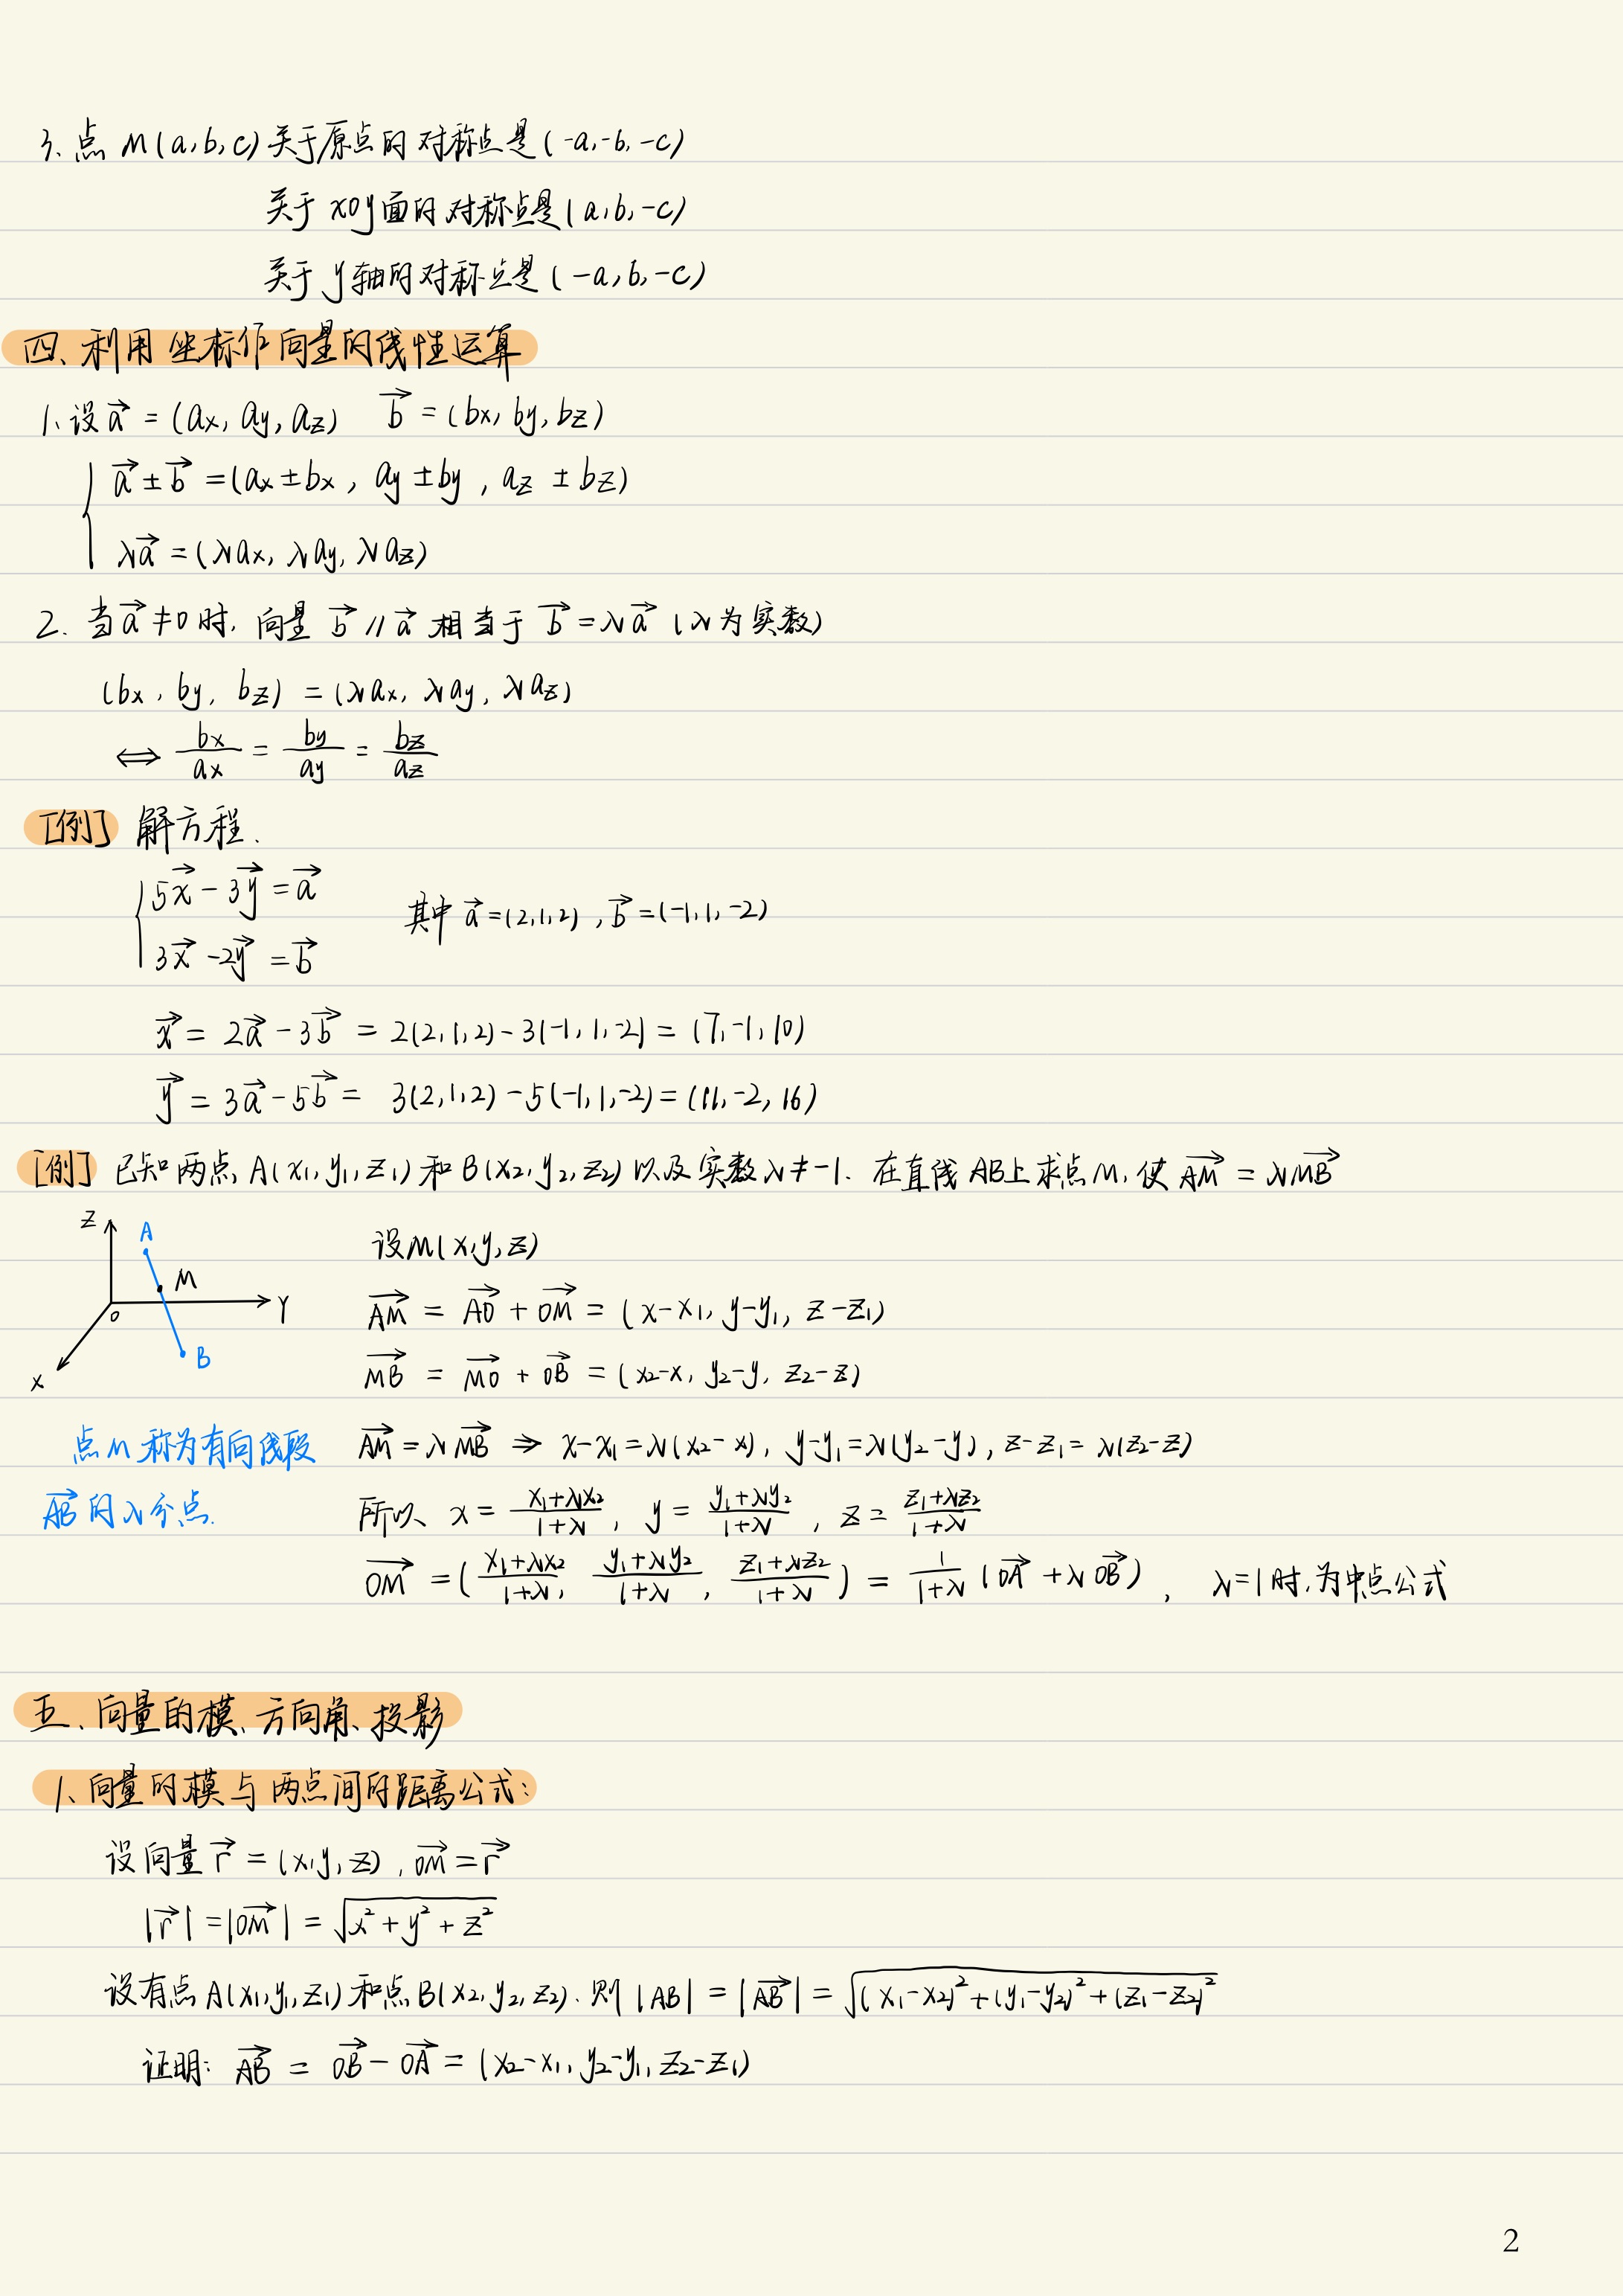 3、点 M(a,b,c)关于原点的对称点是(-a,-b,-c)
关于 xoy面的对称点是(a,b,-c)
关于 y轴的对称点是(-a,b,-c)
四、利用坐标作向量的线性运算
1、设 $\vec{a}$ = (ax, ay, az)  $\vec{b}$ = (bx, by, bz)
$\vec{a}$ ± $\vec{b}$ = (ax ± bx, ay ± by, az ± bz)
λ$\vec{a}$ = (λax, λay, λaz)
2. 当 $\vec{a}$ ≠ 0 时, 向量 $\vec{b}$ // $\vec{a}$ 相当于 $\vec{b}$ = λ$\vec{a}$ (λ为实数)
(bx, by, bz) = (λax, λay, λaz)
⟺ $\frac{bx}{ax}$ = $\frac{by}{ay}$ = $\frac{bz}{az}$
[例] 解方程.
5$\vec{x}$ - 3$\vec{y}$ = $\vec{a}$
其中 $\vec{a}$ = (2,1,2), $\vec{b}$ = (-1,1,-2)
3$\vec{x}$ - 2$\vec{y}$ = $\vec{b}$
$\vec{x}$ = 2$\vec{a}$ - 3$\vec{b}$ = 2(2,1,2) - 3(-1,1,-2) = (7,-1,10)
$\vec{y}$ = 3$\vec{a}$ - 5$\vec{b}$ = 3(2,1,2) - 5(-1,1,-2) = (11,-2,16)
[例] 已知两点 A(x₁,y₁,z₁) 和 B(x₂,y₂,z₂) 以及实数 λ≠-1. 在直线AB上求点M, 使 $\overrightarrow{AM}$ = λ$\overrightarrow{MB}$
Z
A
M
o
Y
B
X
设M(x,y,z)
$\overrightarrow{AM}$ = $\overrightarrow{AO}$ + $\overrightarrow{OM}$ = (x-x₁, y-y₁, z-z₁)
$\overrightarrow{MB}$ = $\overrightarrow{MO}$ + $\overrightarrow{OB}$ = (x₂-x, y₂-y, z₂-z)
点M称为有向线段
$\overrightarrow{AB}$ 的λ分点.
$\overrightarrow{AM}$ = λ$\overrightarrow{MB}$ ⇒ x-x₁=λ(x₂-x), y-y₁=λ(y₂-y), z-z₁=λ(z₂-z)
所以、x = $\frac{x₁+λx₂}{1+λ}$, y = $\frac{y₁+λy₂}{1+λ}$, z = $\frac{z₁+λz₂}{1+λ}$
$\overrightarrow{OM}$ = ($\frac{x₁+λx₂}{1+λ}$, $\frac{y₁+λy₂}{1+λ}$, $\frac{z₁+λz₂}{1+λ}$) = $\frac{1}{1+λ}$ ($\overrightarrow{OA}$ + λ$\overrightarrow{OB}$), λ=1时,为中点公式
五、向量的模、方向角、投影
1、向量的模与两点间的距离公式:
设向量 $\vec{r}$ = (x,y,z), $\overrightarrow{OM}$ = $\vec{r}$
|$\vec{r}$| = |$\overrightarrow{OM}$| = $\sqrt{x²+y²+z²}$
设有点 A(x₁,y₁,z₁) 和点 B(x₂,y₂,z₂). 则 |AB| = |$\overrightarrow{AB}$| = $\sqrt{(x₁-x₂)²+(y₁-y₂)²+(z₁-z₂)²}$
证明: $\overrightarrow{AB}$ = $\overrightarrow{OB}$ - $\overrightarrow{OA}$ = (x₂-x₁, y₂-y₁, z₂-z₁)
2